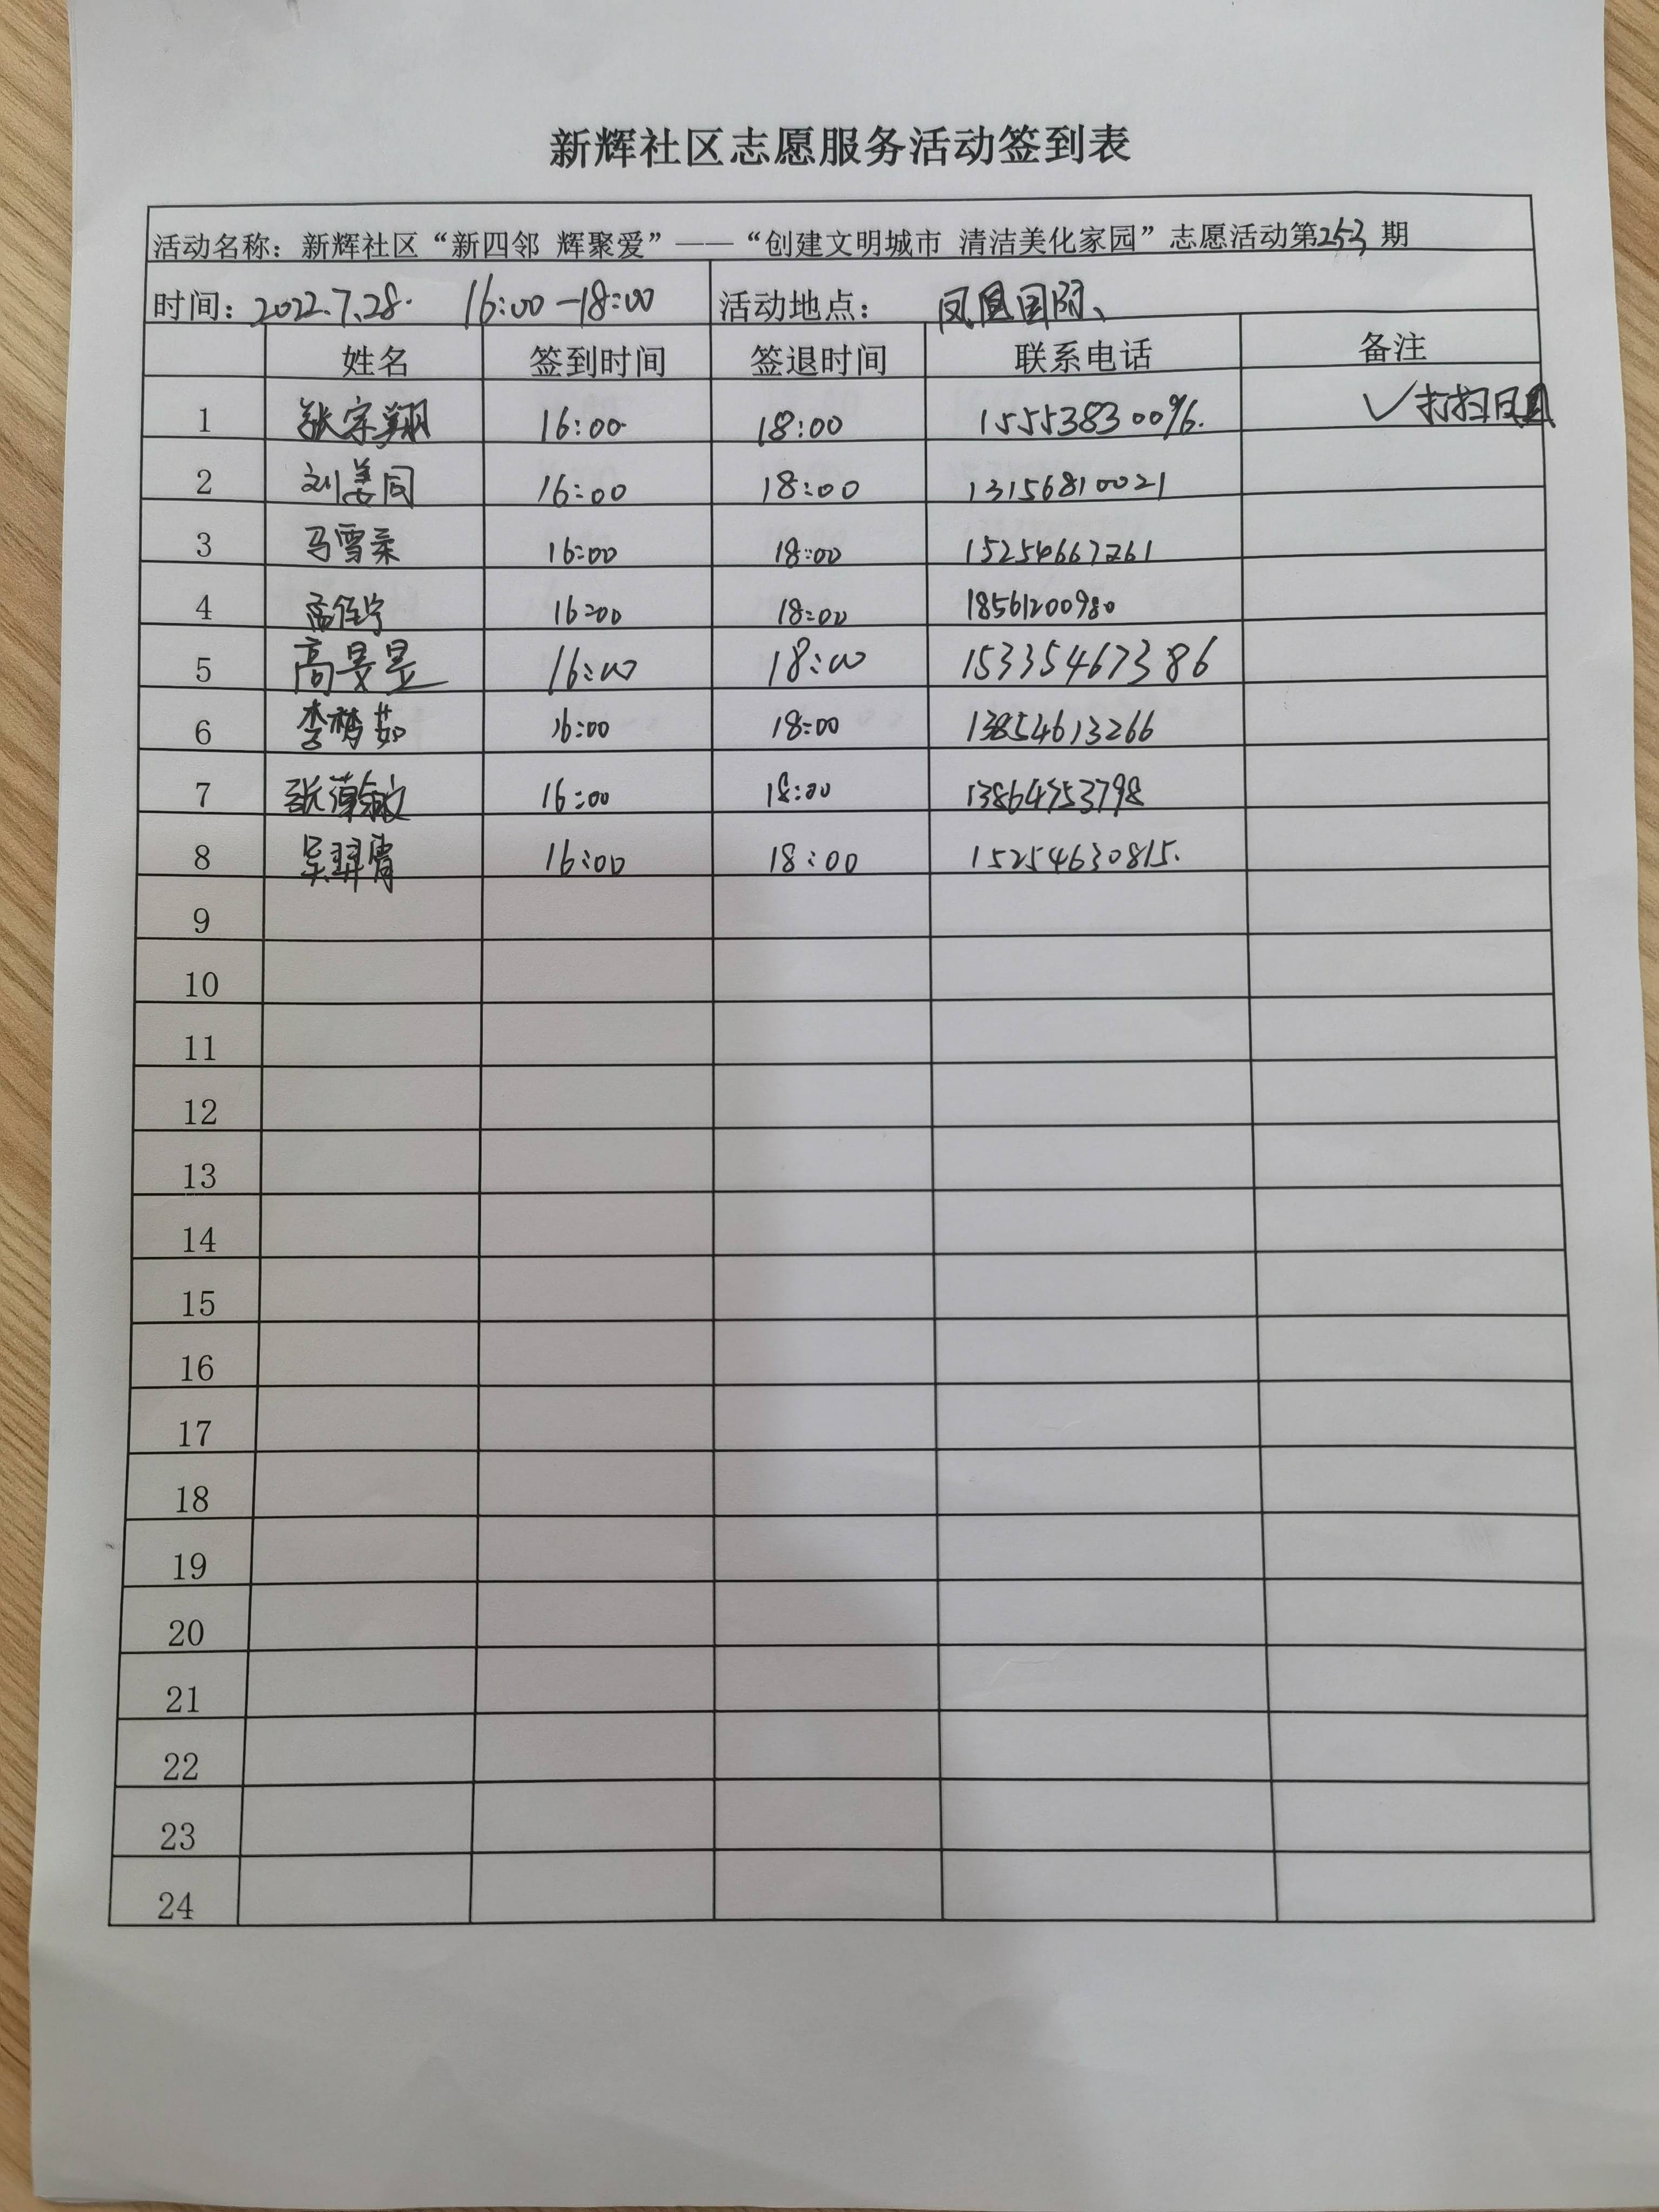 新辉社区志愿服务活动签到表
活动名称：新辉社区“新四邻 辉聚爱”——“创建文明城市 清洁美化家园”志愿活动第253期
时间：2022.7.28. 16:00-18:00 活动地点：凤凰国际、
姓名 签到时间 签退时间 联系电话 备注
1 张宗翔 16:00 18:00 15553830096. ✓打扫凤凰
2 刘姜同 16:00 18:00 13156810021
3 马雪柔 16:00 18:00 15254667261
4 孟佳宁 16:00 18:00 18561200980
5 高旻昱 16:00 18:00 15335467386
6 李梦茹 16:00 18:00 13854613266
7 张 16:00 18:00 13864753798
8 吴羿霄 16:00 18:00 15254630815.
9
10
11
12
13
14
15
16
17
18
19
20
21
22
23
24